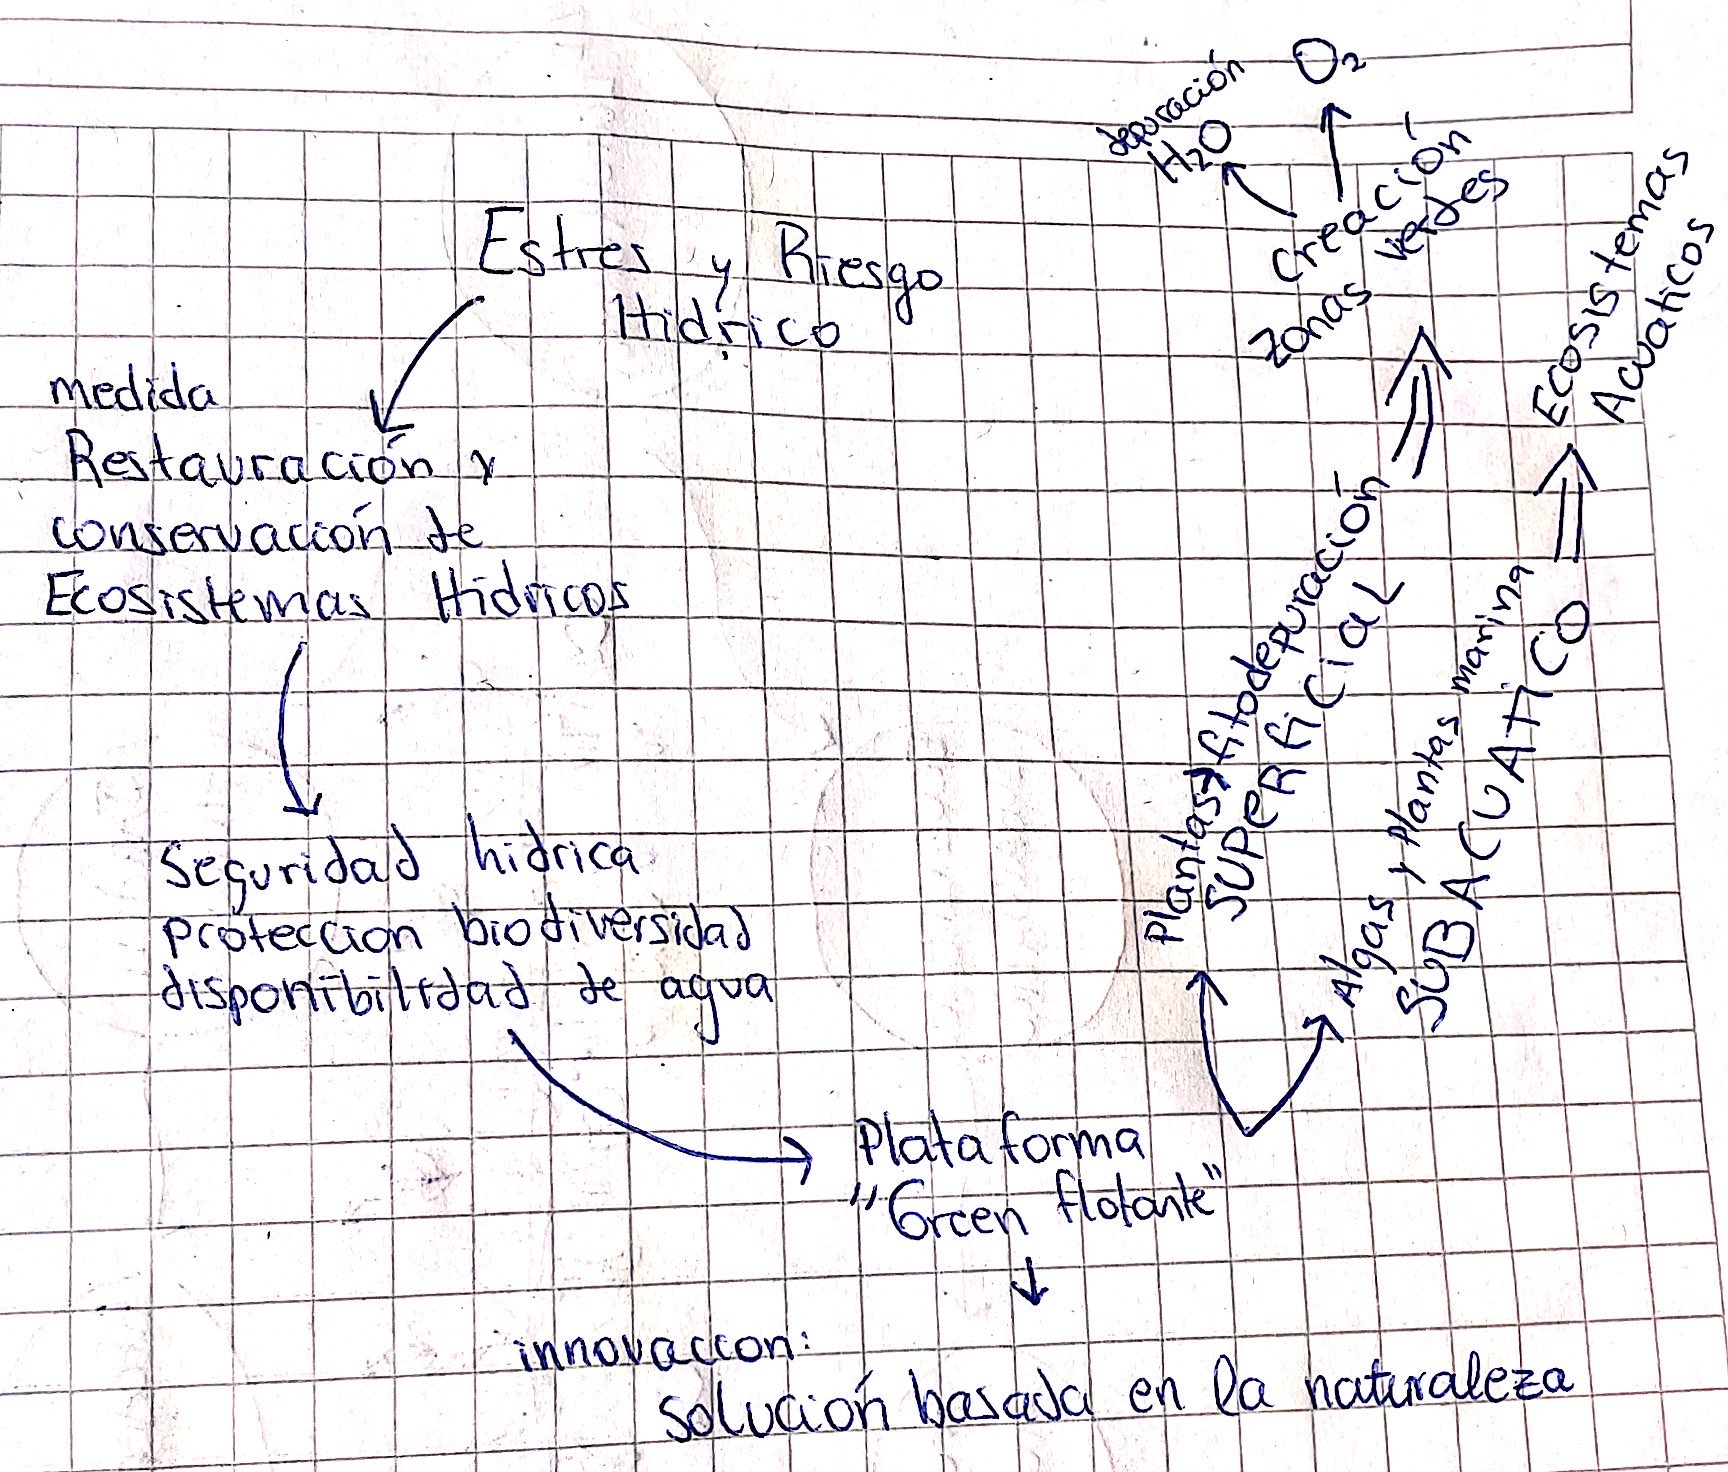 Estres y Riesgo
Hídrico
medida
Restauración y
conservación de
Ecosistemas Hídricos
Seguridad hídrica
protección biodiversidad
disponibilidad de agua
Plataforma
"Green flotante"
innovación:
solución basada en la naturaleza
Plantas → fitodepuración
SUPERFICIAL
creación
zonas verdes
depuración
H₂O
O₂
Algas y Plantas marina
SUBACUATICO
Ecosistemas
Acuaticos